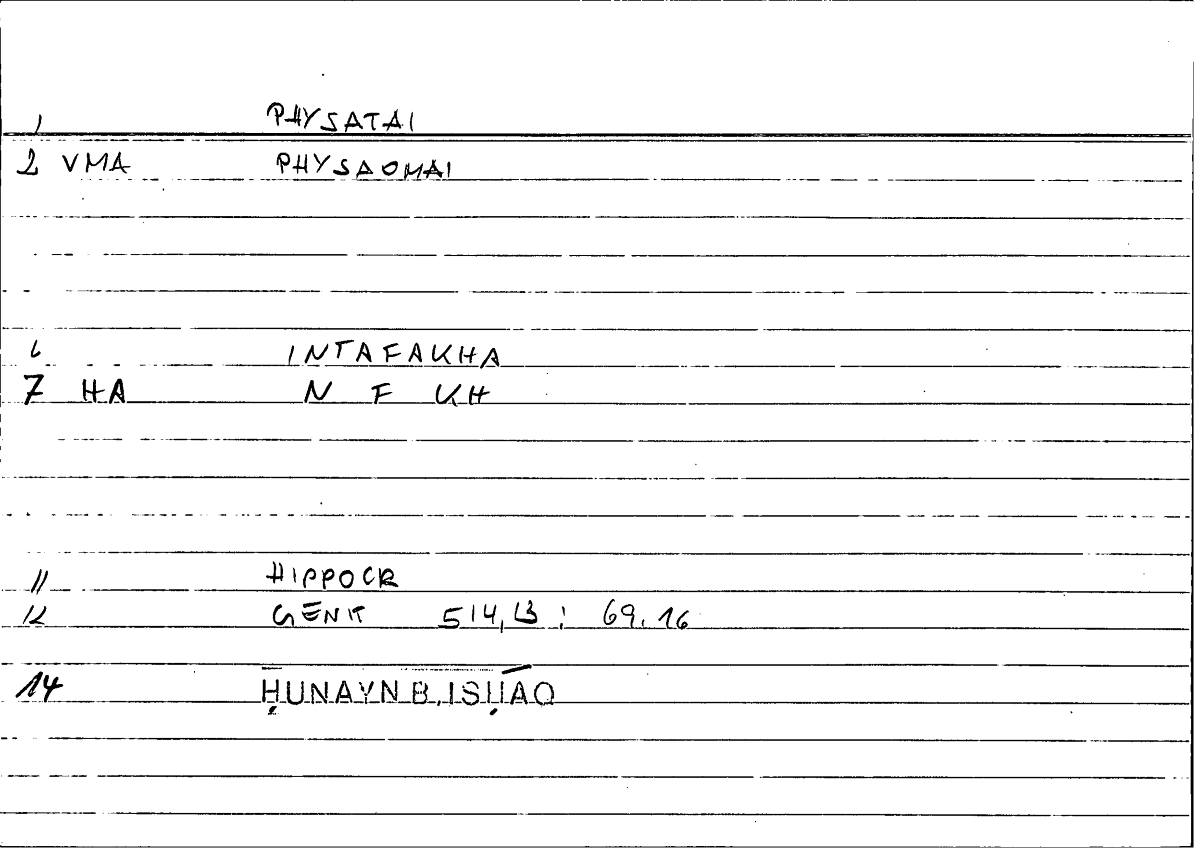 1 PHYSATAI
2 VMA PHYSAOMAI
6 INTAFAKHA
7 HA N F KH
11 HIPPOCR
12 GENIT 514,13 : 69.16
14 ḤUNAYN B. ISḤĀQ